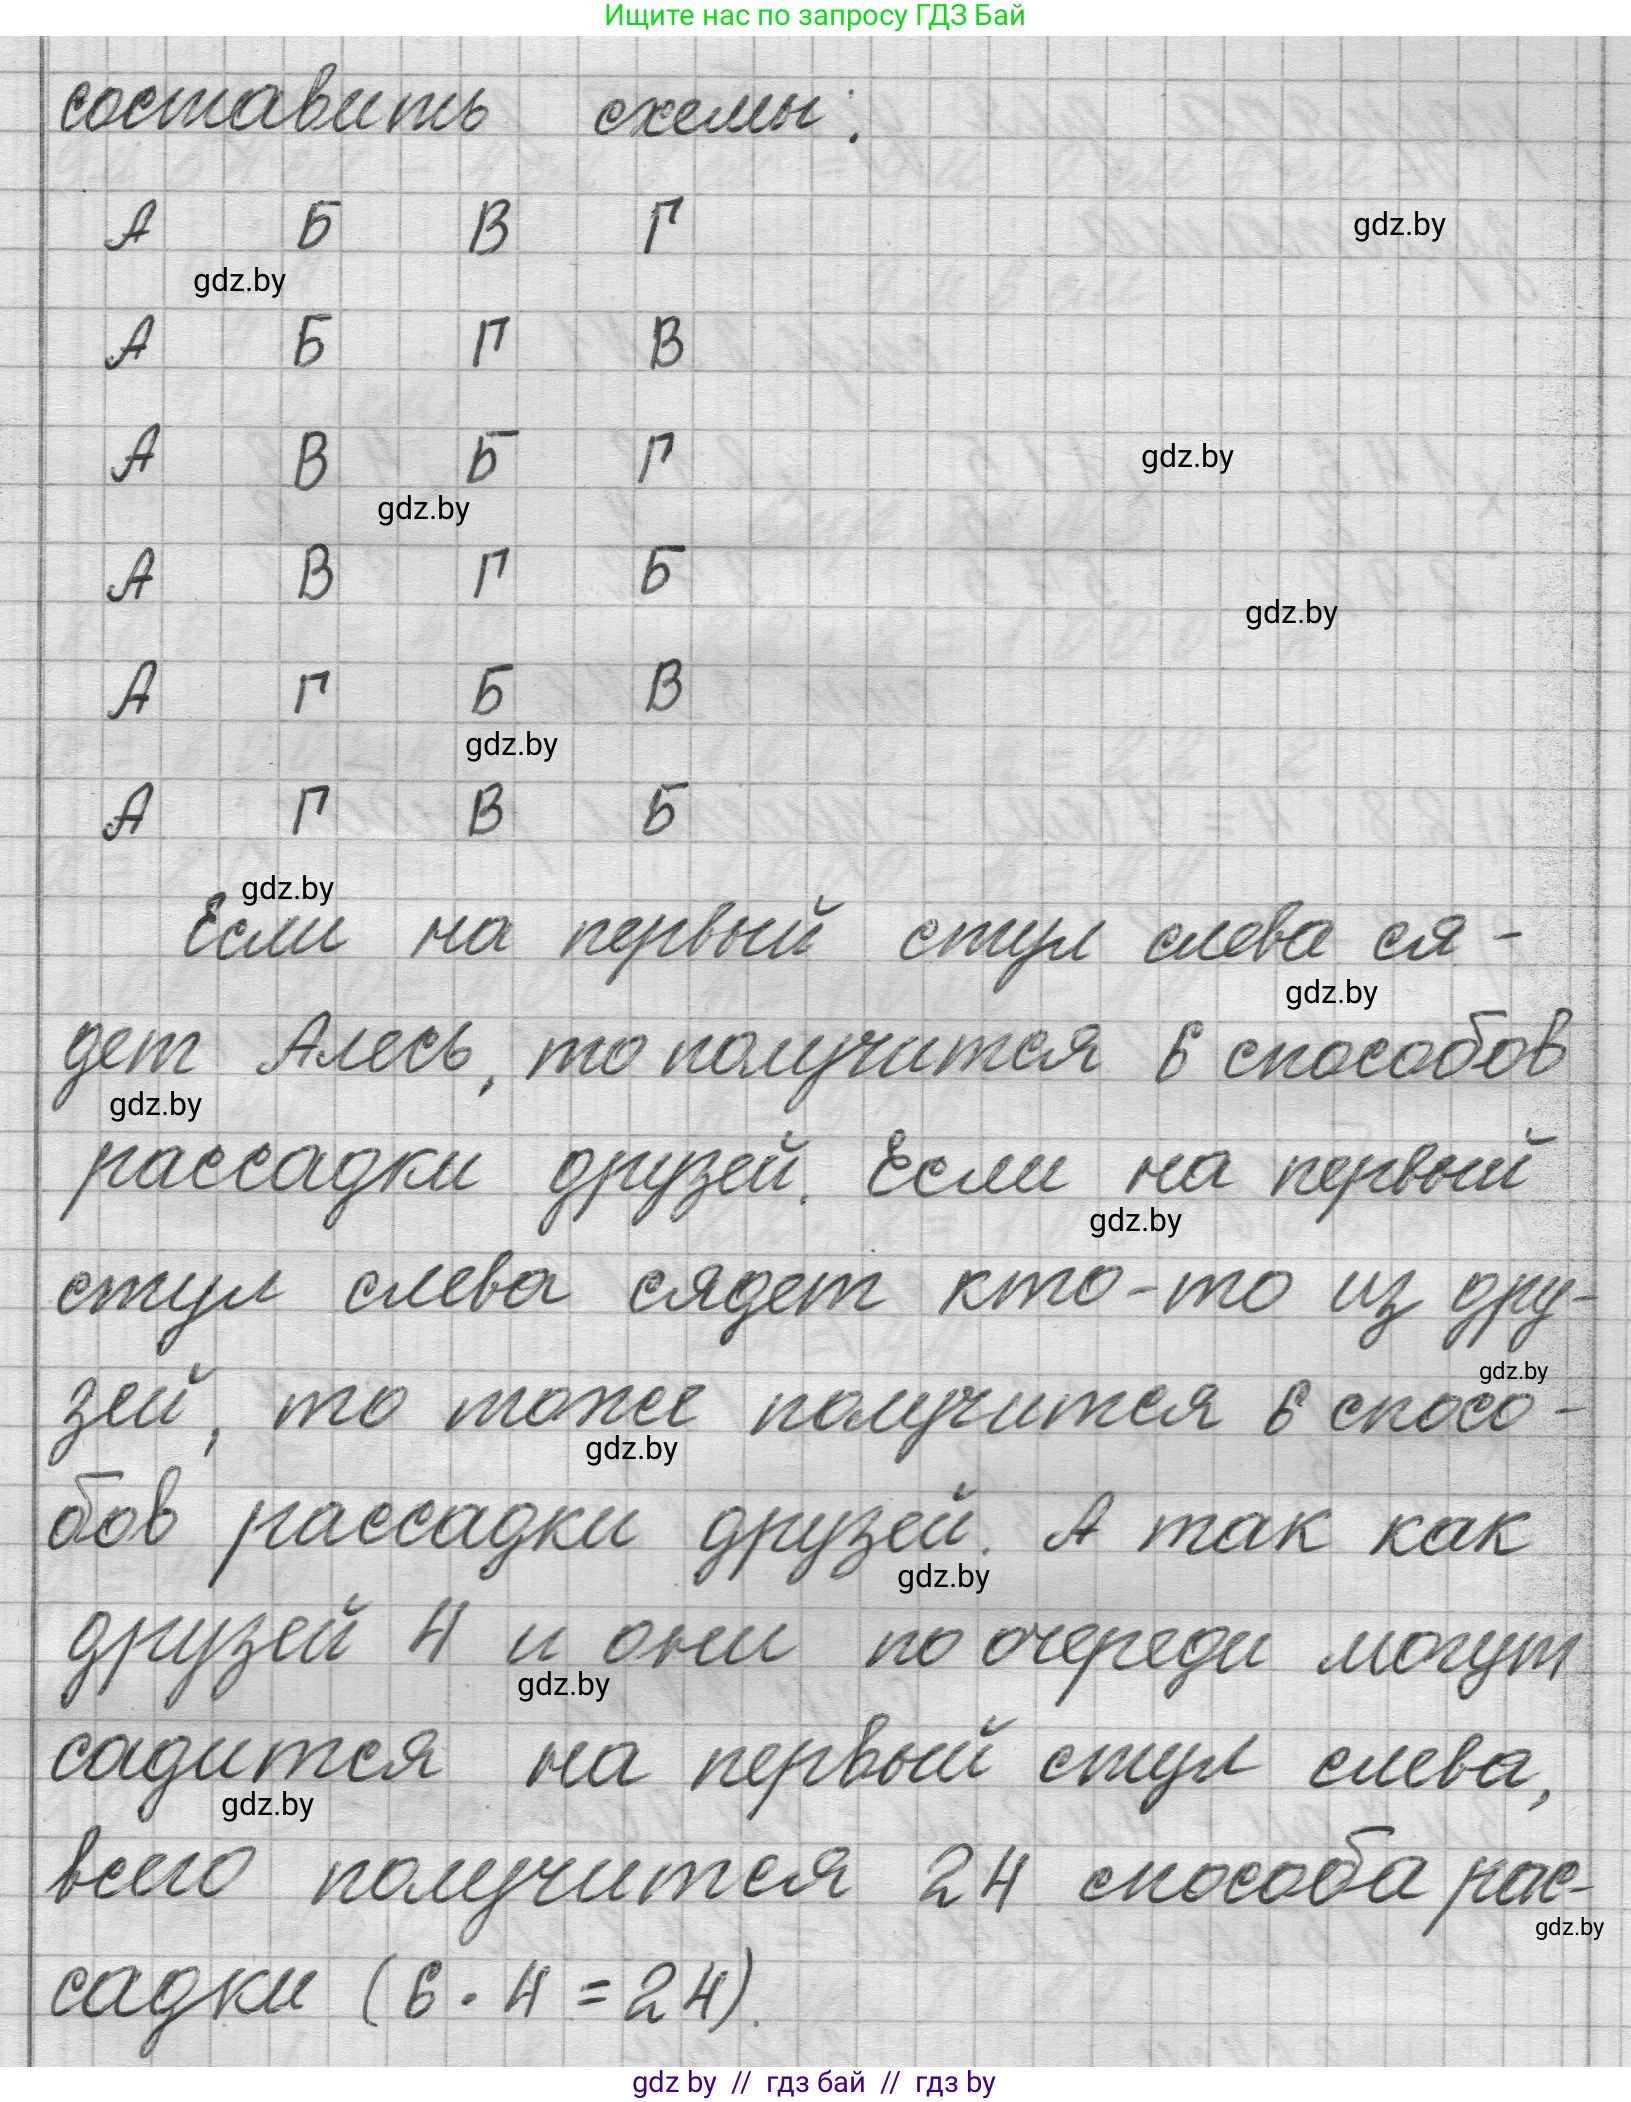 Ищите нас по запросу ГДЗ Бай
составить схемы:
А Б В Г
gdz.by
gdz.by
А Б Г В
А В Б Г
gdz.by
gdz.by
А В Г Б
gdz.by
А Г Б В
gdz.by
А Г В Б
gdz.by
Если на первый стул слева ся-
gdz.by
дет Алесь, то получится 6 способов
gdz.by
рассадки друзей. Если на первый
gdz.by
стул слева сядет кто-то из дру-
gdz.by
зей, то тоже получится 6 спосо-
gdz.by
бов рассадки друзей. А так как
gdz.by
друзей 4 и они по очереди могут
gdz.by
садится на первый стул слева,
gdz.by
всего получится 24 способа рас-
gdz.by
садки (6 · 4 = 24).
gdz by // гдз бай // гдз by